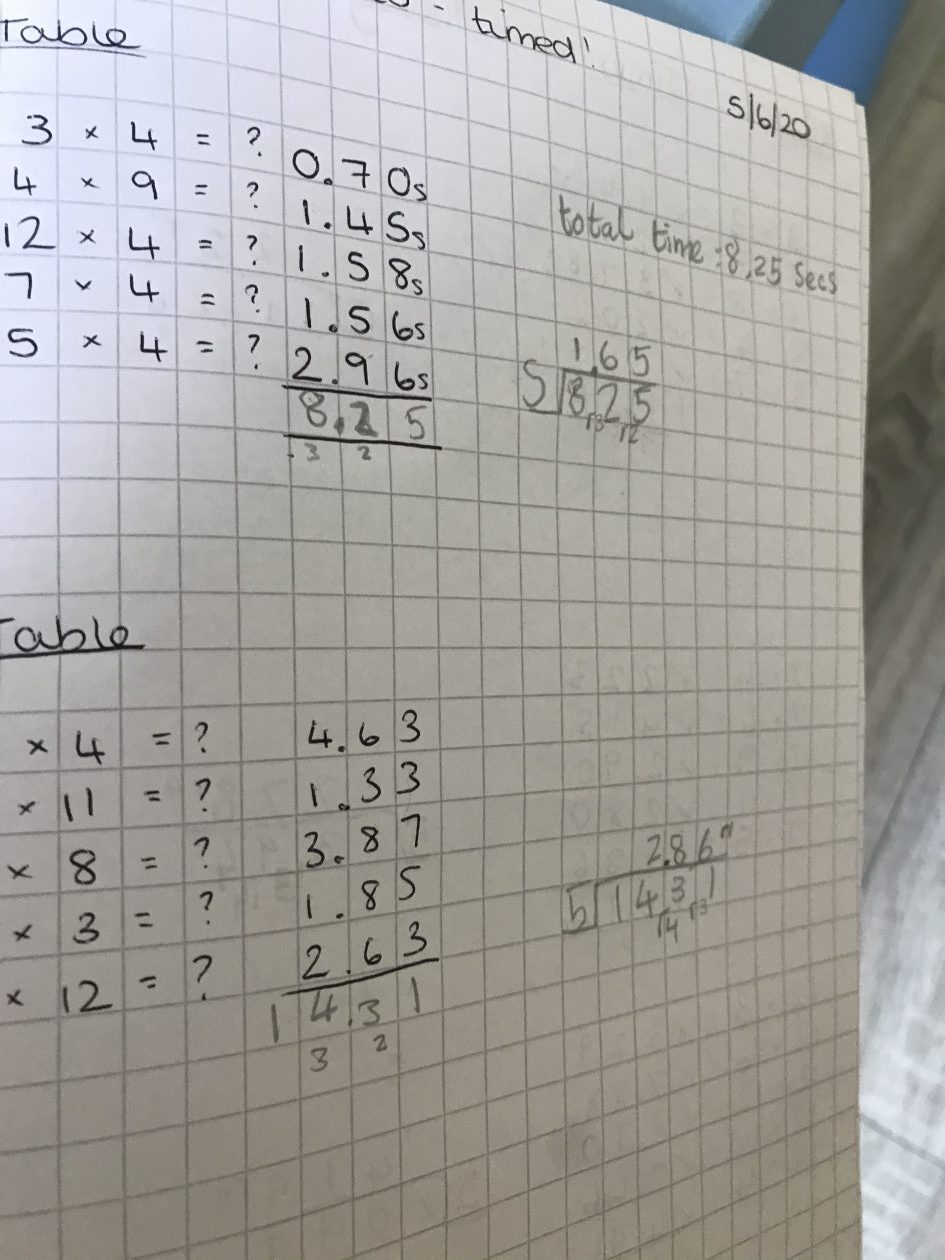 - timed!
Table
5/6/20
3 × 4 = ? 0.70s
4 × 9 = ? 1.45s
12 × 4 = ? 1.58s
7 × 4 = ? 1.56s
5 × 4 = ? 2.96s
8.25
3 2
total time: 8.25 Secs
1.65
5 8.25
3 2
Table
× 4 = ? 4.63
× 11 = ? 1.33
× 8 = ? 3.87
× 3 = ? 1.85
× 12 = ? 2.63
14.31
3 2
2.86
5 14.31
4 3